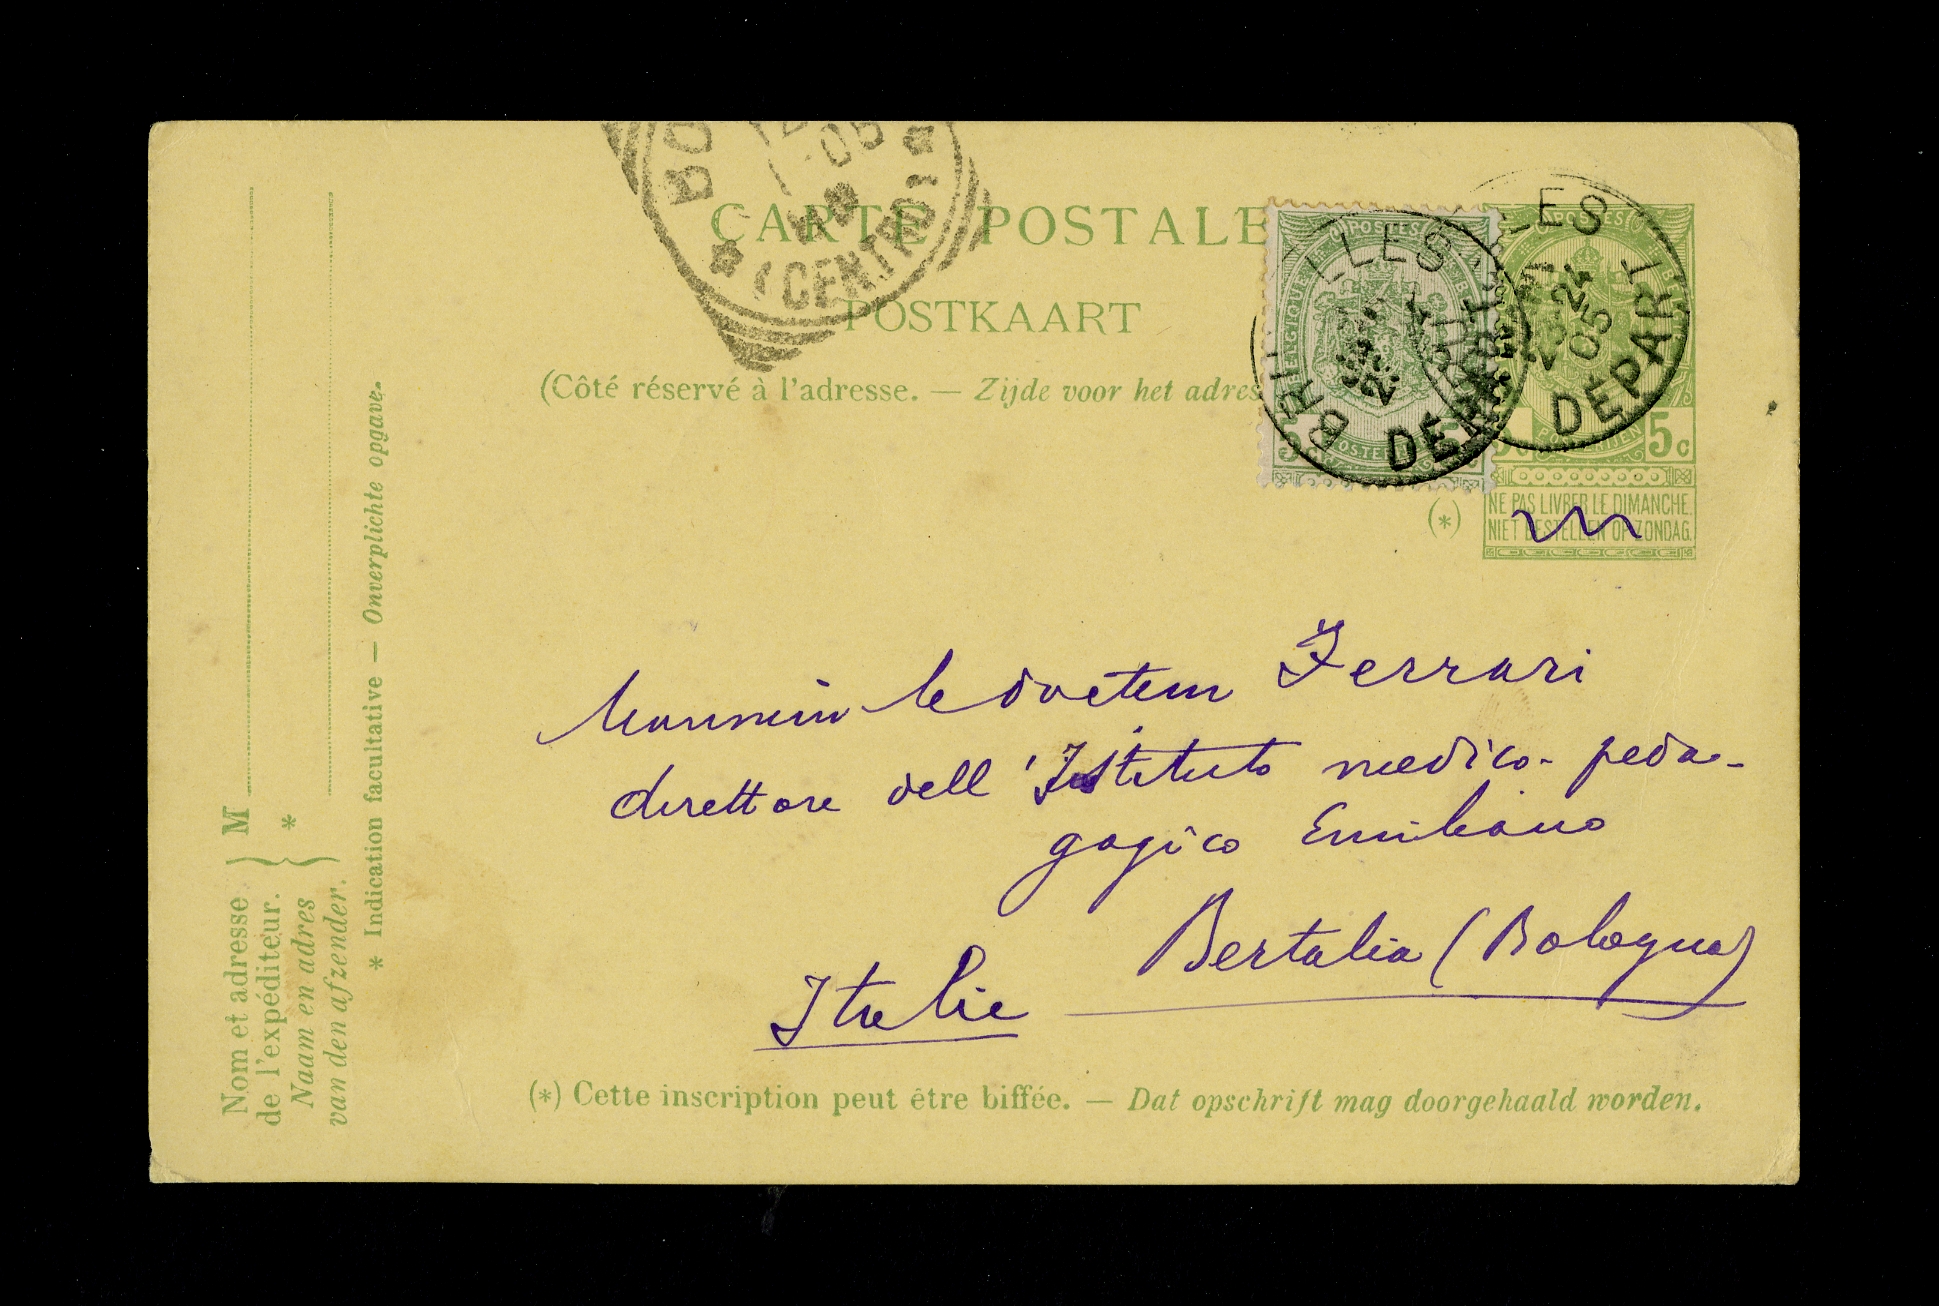 CARTE POSTALE
POSTKAART
(Côté réservé à l'adresse. — Zijde voor het adres
BO
05
(CENTRO)
BRU LLES
DEPART
ES
24
05
DEPART
POSTES
5c
(*)
NE PAS LIVRER LE DIMANCHE.
NIET BESTELLEN OP ZONDAG.
Monsieur le docteur Ferrari
direttore dell'Istituto medico-peda-
gogico Emiliano
Bertalia (Bologna)
Italie
(*) Cette inscription peut être biffée. — Dat opschrift mag doorgehaald worden.
Nom et adresse
de l'expéditeur.
Naam en adres
van den afzender.
M
*
* Indication facultative — Onverplichte opgave.